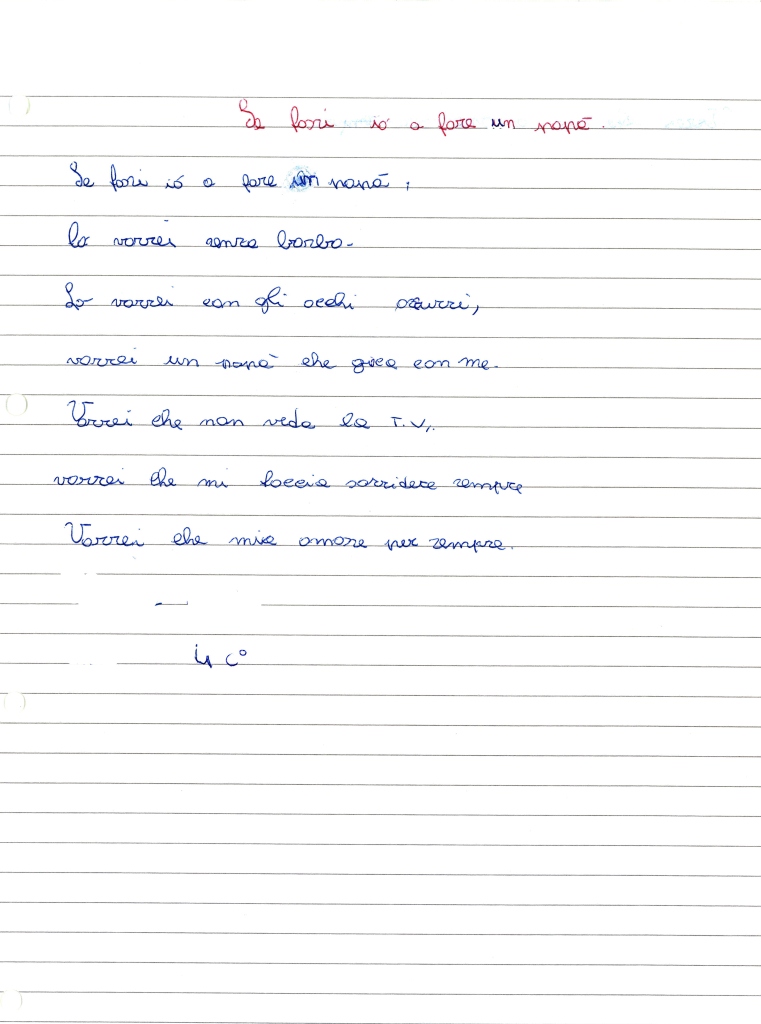 Se fossi ió a fare un papà.
Se fossi ió a fare un papà,
lo vorrei senza barba.
Lo vorrei con gli occhi azzurri,
vorrei un papà che gioca con me.
Vorrei che non veda la T.V,.
vorrei che mi faccia sorridere sempre
Vorrei che mi amare per sempre.
4 C°